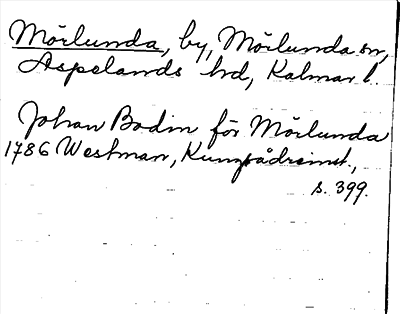 Mörlunda, by, Mörlunda sn,
Aspelands hd, Kalmar l.
Johan Bodin för Mörlunda
1786 Westman, Kungsådreinst.,
s. 399.